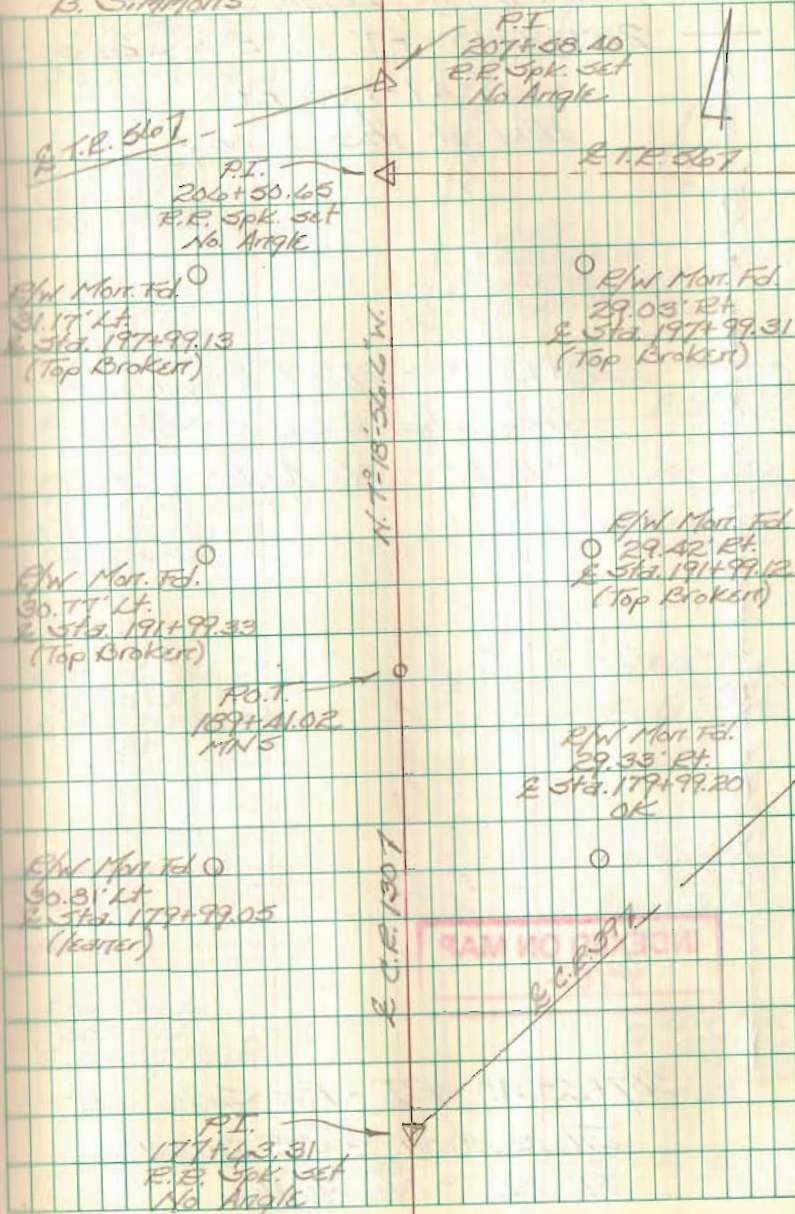 B. Simmons
P.I.
207+58.40
R.R. Spk. Set
No Angle
℄ T.R. 567
℄ T.R. 567
P.I.
206+50.65
R.R. Spk. Set
No Angle
R/W Mon. Fd.
31.17' Lt.
℄ Sta. 197+99.13
(Top Broken)
R/W Mon. Fd.
29.03' Rt.
℄ Sta. 197+99.31
(Top Broken)
N. 7°-18'-56.6" W.
R/W Mon. Fd.
29.42' Rt.
℄ Sta. 191+99.12
(Top Broken)
R/W Mon. Fd.
30.77' Lt.
℄ Sta. 191+99.33
(Top Broken)
P.O.T.
189+41.02
MNS
R/W Mon Fd.
29.33' Rt.
℄ Sta. 179+99.20
OK
R/W Mon Fd
30.81' Lt
℄ Sta. 179+99.05
(leaner)
℄ C.R. 130
ON MAP
℄ C.R.
P.I.
177+43.31
R.R. Spk. Set
No Angle